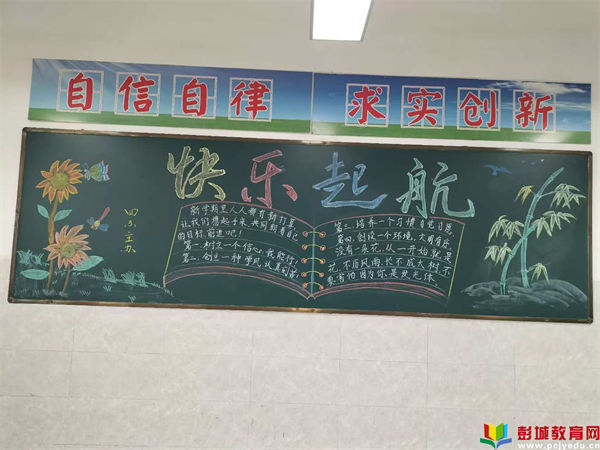 自信自律
求实创新
快乐起航
四.5.主办
新学期里人人都有新打算,
让我们携起手来,共同朝有自己
的目标,前进吧!
第一.树立一个信心,我能行,
第二.创立一种学风,认真刻苦,
第三.培养一个习惯,自觉自愿
第四.创设一个环境,文明有序,
没有一朵花,从一开始就是
花,不历风雨,长不成大树,不
要害怕因为你,是发光体.
彭城教育网
www.pcjyedu.cn